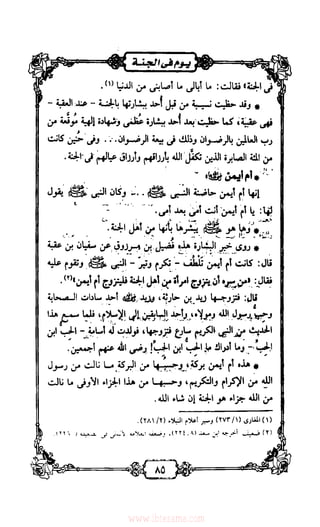 يوم فى الجنة
فى الجنة؛ فقالت: ما أبالى ما أصابنى من الدنيا (١).
* وقد حظيت نسيبة من قبل أحد ببشارتها بالجنة - عند العقبة -
فهى عقبية، كما حظيت بعد أحد ببشارة عظمى وشهادة إلهية موقعة من
رب العالمين بالرضوان وذلك فى بيعة الرضوان... وفى حنين كانت
من المئة الصابرة الذين تكفل الله بأرزاقهم وأرزاق عيالهم فى الجنة.
* أم أيمن
إنها أم أيمن حاضنة النبى ﷺ... وكان النبى ﷺ يقول
لها: يا أم أيمن أنت أمى بعد أمى.
* وها هو ﷺ يبشرها بأنها من أهل الجنة.
* روى خبر البشارة هذه فضيل بن مرزوق عن سفيان بن عقبة
قال: كانت أم أيمن تلطف - تكرم وتبر - النبى ﷺ وتقوم عليه
فقال: «من سره أن يتزوج امرأة من أهل الجنة فليتزوج أم أيمن»(٢).
قال: فتزوجها زيد بن حارثة، وزيد أحد سادات الصحابة
وحب رسول الله ومولاه، وأحد السابقين إلى الإسلام، فلما سمع هذا
الحديث من النبى الكريم سارع فتزوجها، فولدت له أسامة - الحب ابن
الحب - وما أدراك ما الحب ابن الحب! رضى الله عنهم أجمعين.
* هذه أم أيمن بركة، وحسبها من البركة ما نالت من رسول
الله من الإكرام والتكريم، وحسبها من هذا الجزاء الأوفى ما نالت
من الله جزاء هو الجنة إن شاء الله.
(١) المغازى (١/ ٢٧٣) وسير أعلام النبلاء (٢/ ٢٨١).
(٢) ضعيف: أخرجه ابن سعد (٨/ ٢٢٤)، وضعفه العلامة الألبانى فى
٨٥
www.ibtesama.com